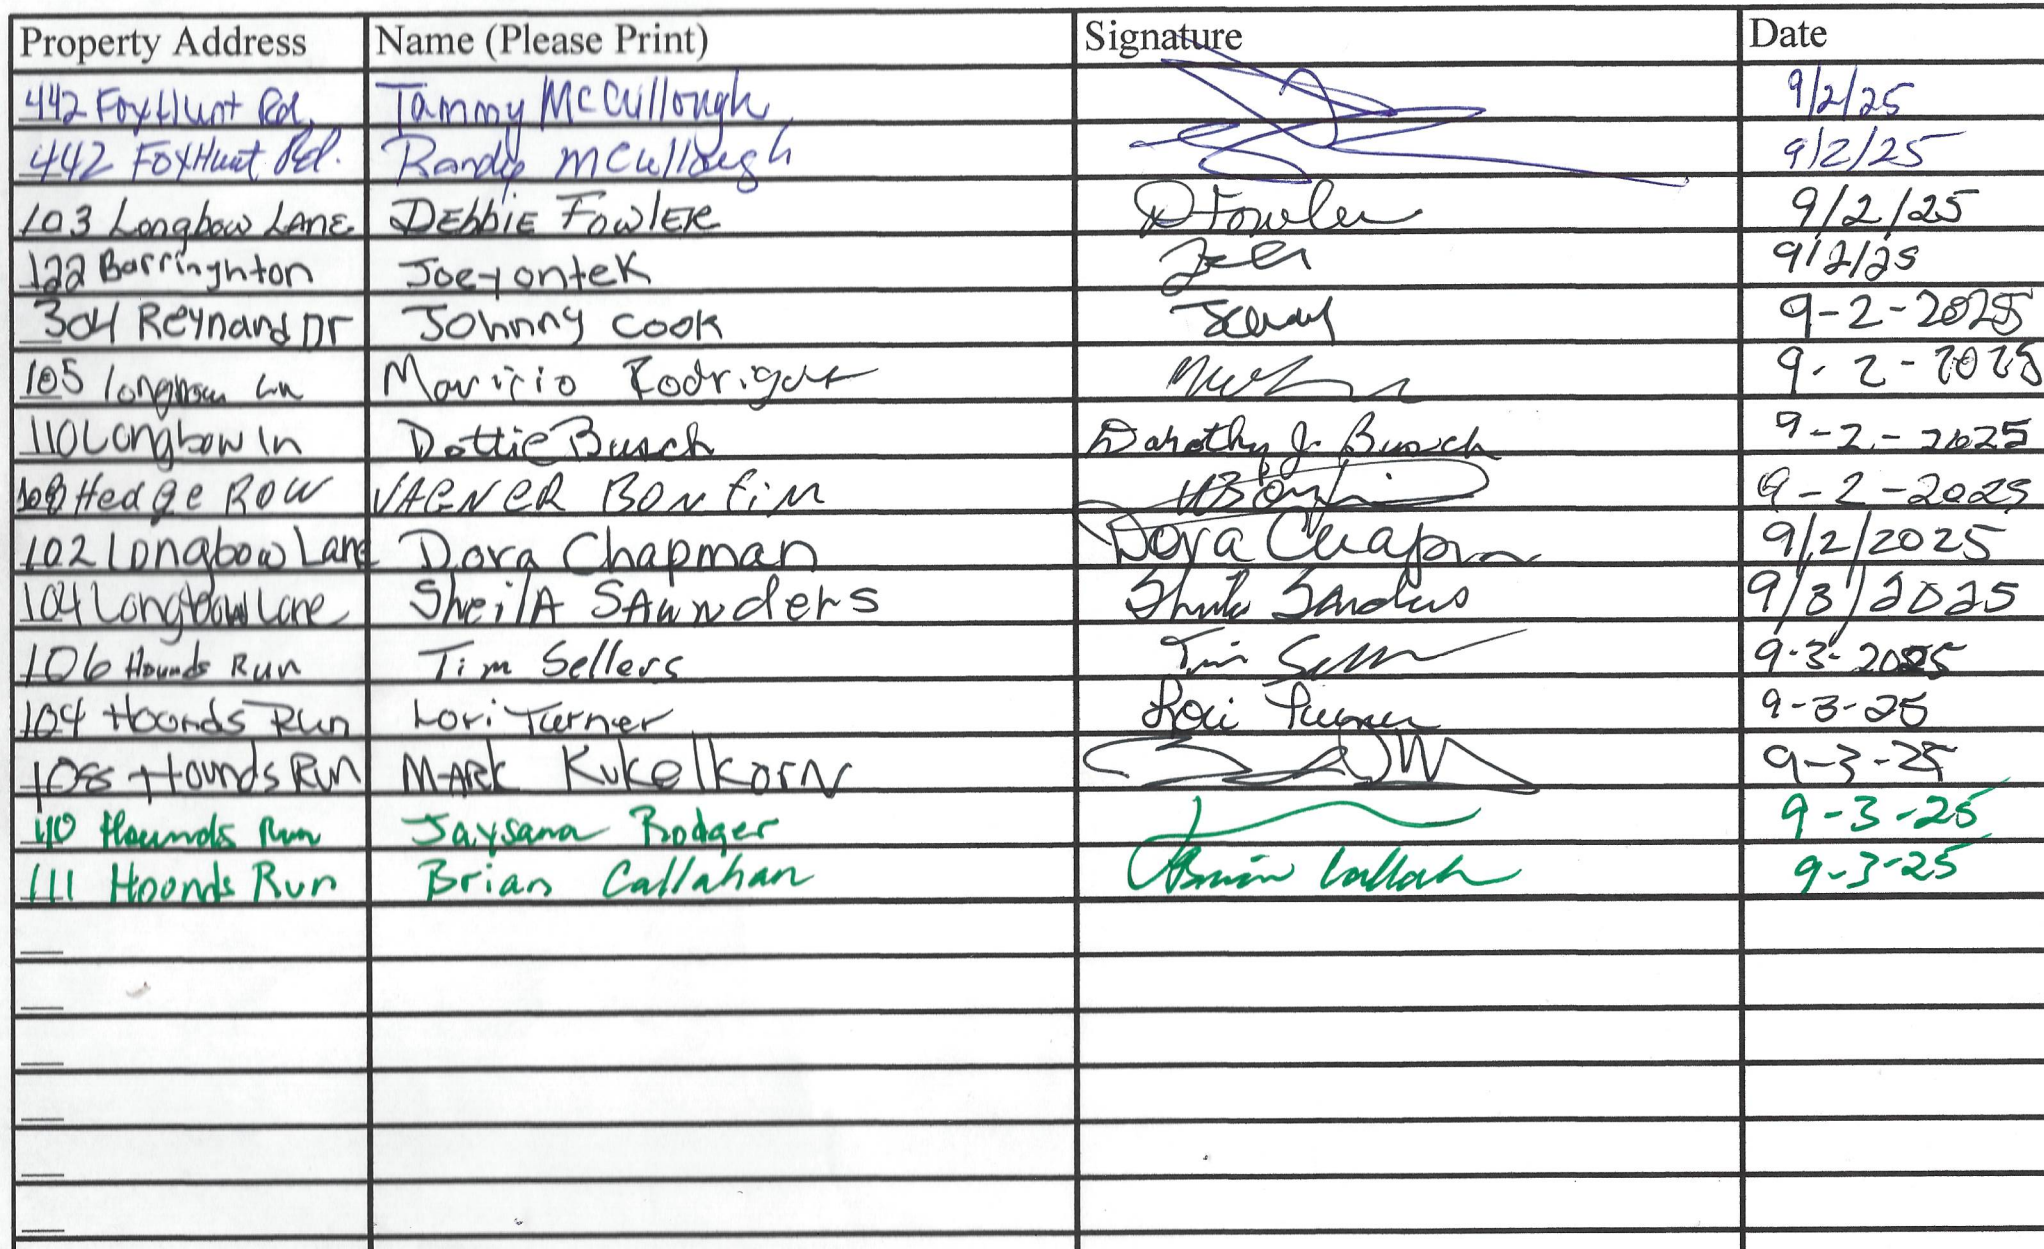 Property Address Name (Please Print) Signature Date
442 FoxHunt Rd. Tammy McCullough 9/2/25
442 FoxHunt Rd. Randy McCullough 9/2/25
103 Longbow LANE DEbbIE FowlER DFowler 9/2/25
122 Barringhton Joe yontek 9/2/25
304 Reynard Dr Johnny cook 9-2-2025
105 longbow Ln Mauricio Rodriguez 9-2-2025
110 Longbow ln Dottie Busch Dorothy J. Busch 9-2-2025
108 Hedge ROW VAGNER BONfiM 9-2-2025
102 Longbow Lane Dora Chapman Dora Chapm 9/2/2025
104 Longbow Lane SheilA SAunders 9/3/2025
106 Hounds Run Tim Sellers Tim 9-3-2025
104 Hounds Run Lori Turner Lori Turner 9-3-25
108 Hounds Run MARK KukelkorN 9-3-25
110 Hounds Run Jaysana Rodger 9-3-25
111 Hounds Run Brian Callahan Brian Callah 9-3-25